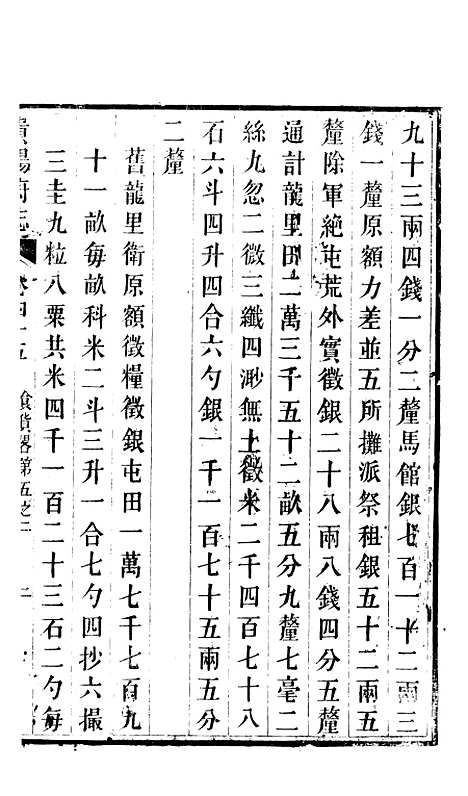 九十三兩四錢一分二釐馬館銀七百一十二兩三
錢一釐原額力差並五所攤派祭祖銀五十二兩五
釐除軍絶屯荒外實徵銀二十八兩八錢四分五釐
通計龍里田二萬三千五十二畝五分九釐七毫二
絲九忽二微三纖四渺無土徵米二千四百七十八
石六斗四升四合六勺銀一千一百七十五兩五分
二釐
舊龍里衛原額徵糧徵銀屯田一萬七千七百九
十一畝每畝科米二斗三升一合七勺四抄六撮
三圭九粒八粟共米四千一百二十三石二勺每
貴陽府志 卷四十五 食貨略第五之二